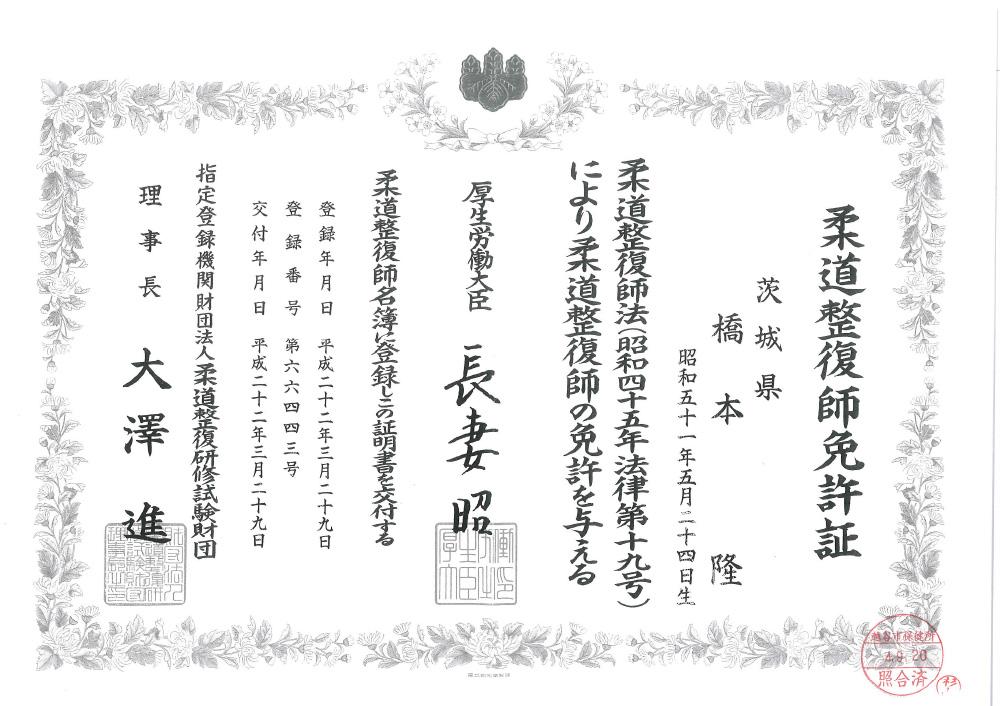 柔道整復師免許証
茨城県
橋本 隆
昭和五十一年五月二十四日生
柔道整復師法(昭和四十五年法律第十九号)
により柔道整復師の免許を与える
厚生労働大臣 長妻昭
柔道整復師名簿に登録しこの証明書を交付する
登録年月日 平成二十二年三月二十九日
登録番号 第六六四四三号
交付年月日 平成二十二年三月二十九日
指定登録機関財団法人柔道整復研修試験財団
理事長 大澤 進
越谷市保健所
4.9.20
照合済